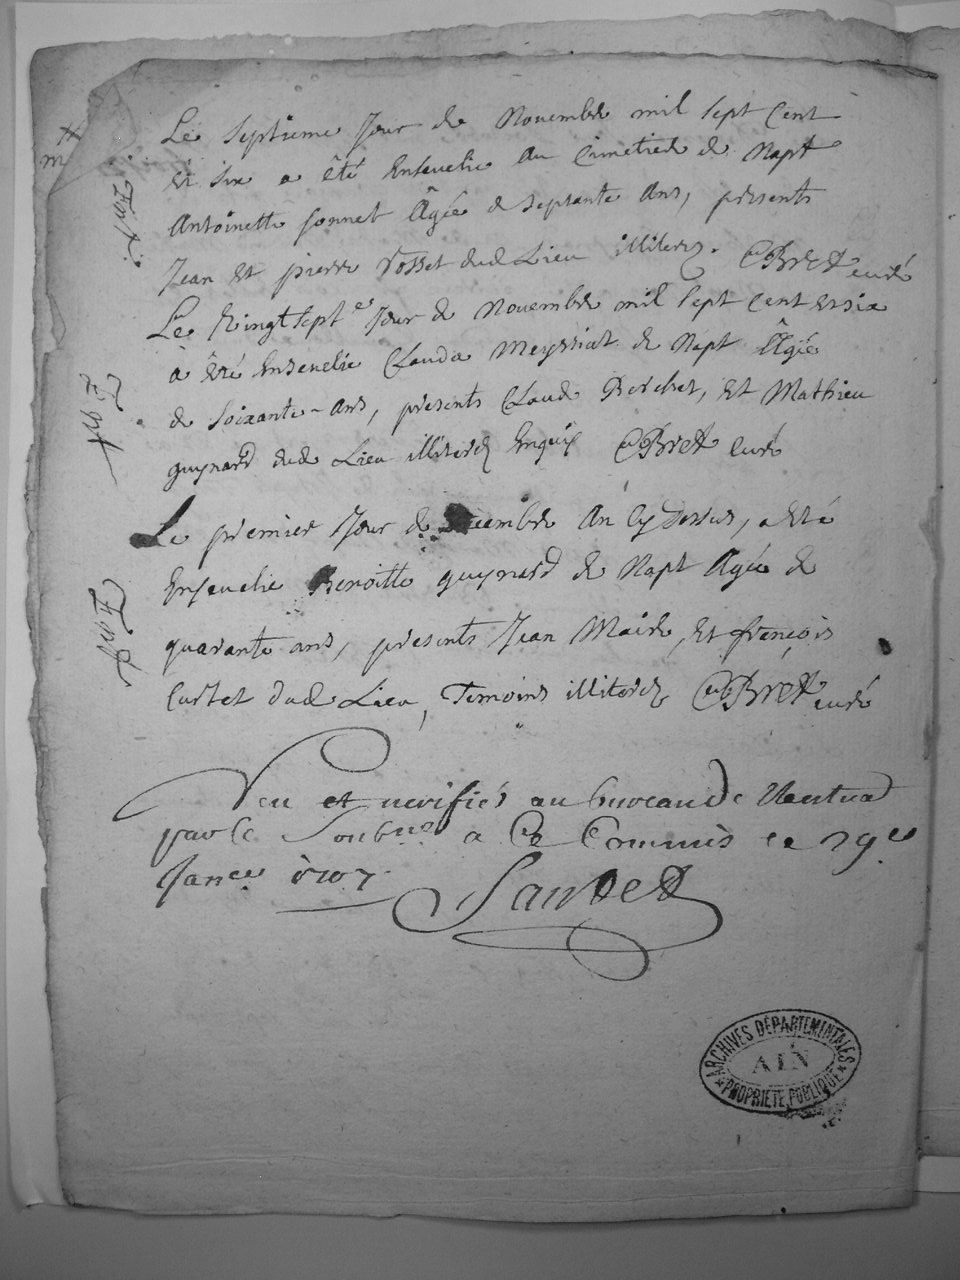 Le septieme Jour de Novembre mil sept Cent
et six a été Ensevelie au Cimetiere de Napt
Antoinette Jonnet Âgée de septante Ans, présents
Jean et pierre Vosset dud Lieu illiterez. CBret curé
Le Vingt sept.e Jour de Novembre mil sept Cent et six
à été Ensevelie Clauda Meyssiat de Napt Âgée
de soixante Ans, présents Claude Berchet, Et Mathieu
guynard dud Lieu illiterez Enquis CBret Curé
Le premier Jour de décembre An Cy dessus, a été
Ensevelie Benoitte guynard de Napt Agée de
quarante ans, présents Jean Maire, Et françois
Curtet dud Lieu, Temoins illiterez CBret curé
Veu et verifiés au bureau de
par le Soubn.é a Ce Commis ce 29.e
Jan.er 1707.
ARCHIVES DÉPARTEMENTALES
AIN
PROPRIÉTÉ PUBLIQUE